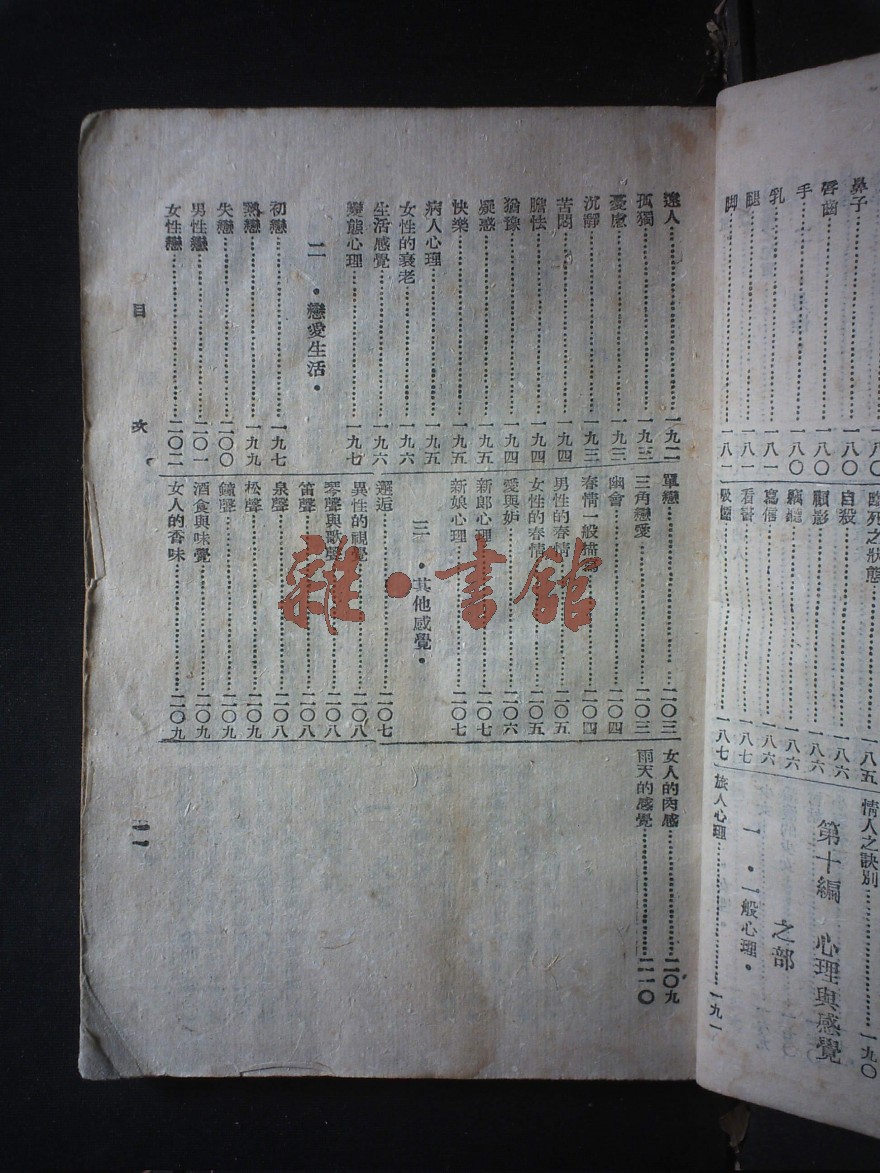 鼻子
一八〇
唇齒
一八〇
手
一八〇
乳
一八一
腿
一八一
脚
一八一
臨死之狀態
一八五
自殺
一八六
顧影
一八六
竊聽
一八六
寫信
一八六
看書
一八七
吸煙
一八七
情人之訣別
一九〇
第十編 心理與感覺
之部
一 ・一般心理・
旅人心理
一九一
一九二
孤獨
一九三
憂慮
一九三
沉靜
一九三
苦悶
一九四
膽怯
一九四
猶豫
一九四
疑惑
一九五
快樂
一九五
病人心理
一九五
女性的衰老
一九六
生活感覺
一九六
變態心理
一九七
二 ・戀愛生活・
初戀
一九七
熱戀
一九九
失戀
二〇〇
男性戀
二〇一
女性戀
二〇二
單戀
二〇三
三角戀愛
二〇三
幽會
二〇四
春情一般描寫
二〇四
男性的春情
二〇五
女性的春情
二〇五
愛與妒
二〇六
新郎心理
二〇七
新娘心理
二〇七
三 ・其他感覺・
邂逅
二〇七
異性的視覺
二〇八
琴聲與歌聲
二〇八
笛聲
二〇八
泉聲
二〇八
松聲
二〇九
鐘聲
二〇九
酒食與味覺
二〇九
女人的香味
二〇九
女人的肉感
二〇九
雨天的感覺
二一〇
目 次
一一
雜・書館